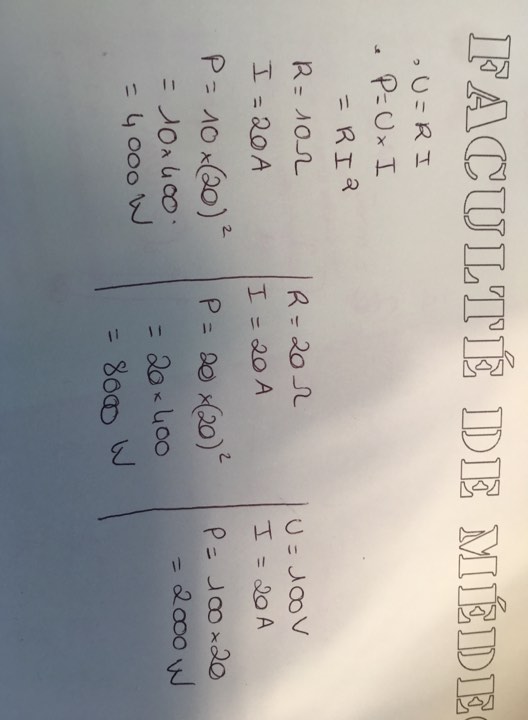 FACULTÉ DE MÉDEC
• U = RI
• P = U × I
= R I²
R = 10 Ω
I = 20A
P = 10 × (20)²
= 10 × 400.
= 4000 W
R = 20 Ω
I = 20A
P = 20 × (20)²
= 20 × 400
= 8000 W
U = 100V
I = 20A
P = 100 × 20
= 2000 W